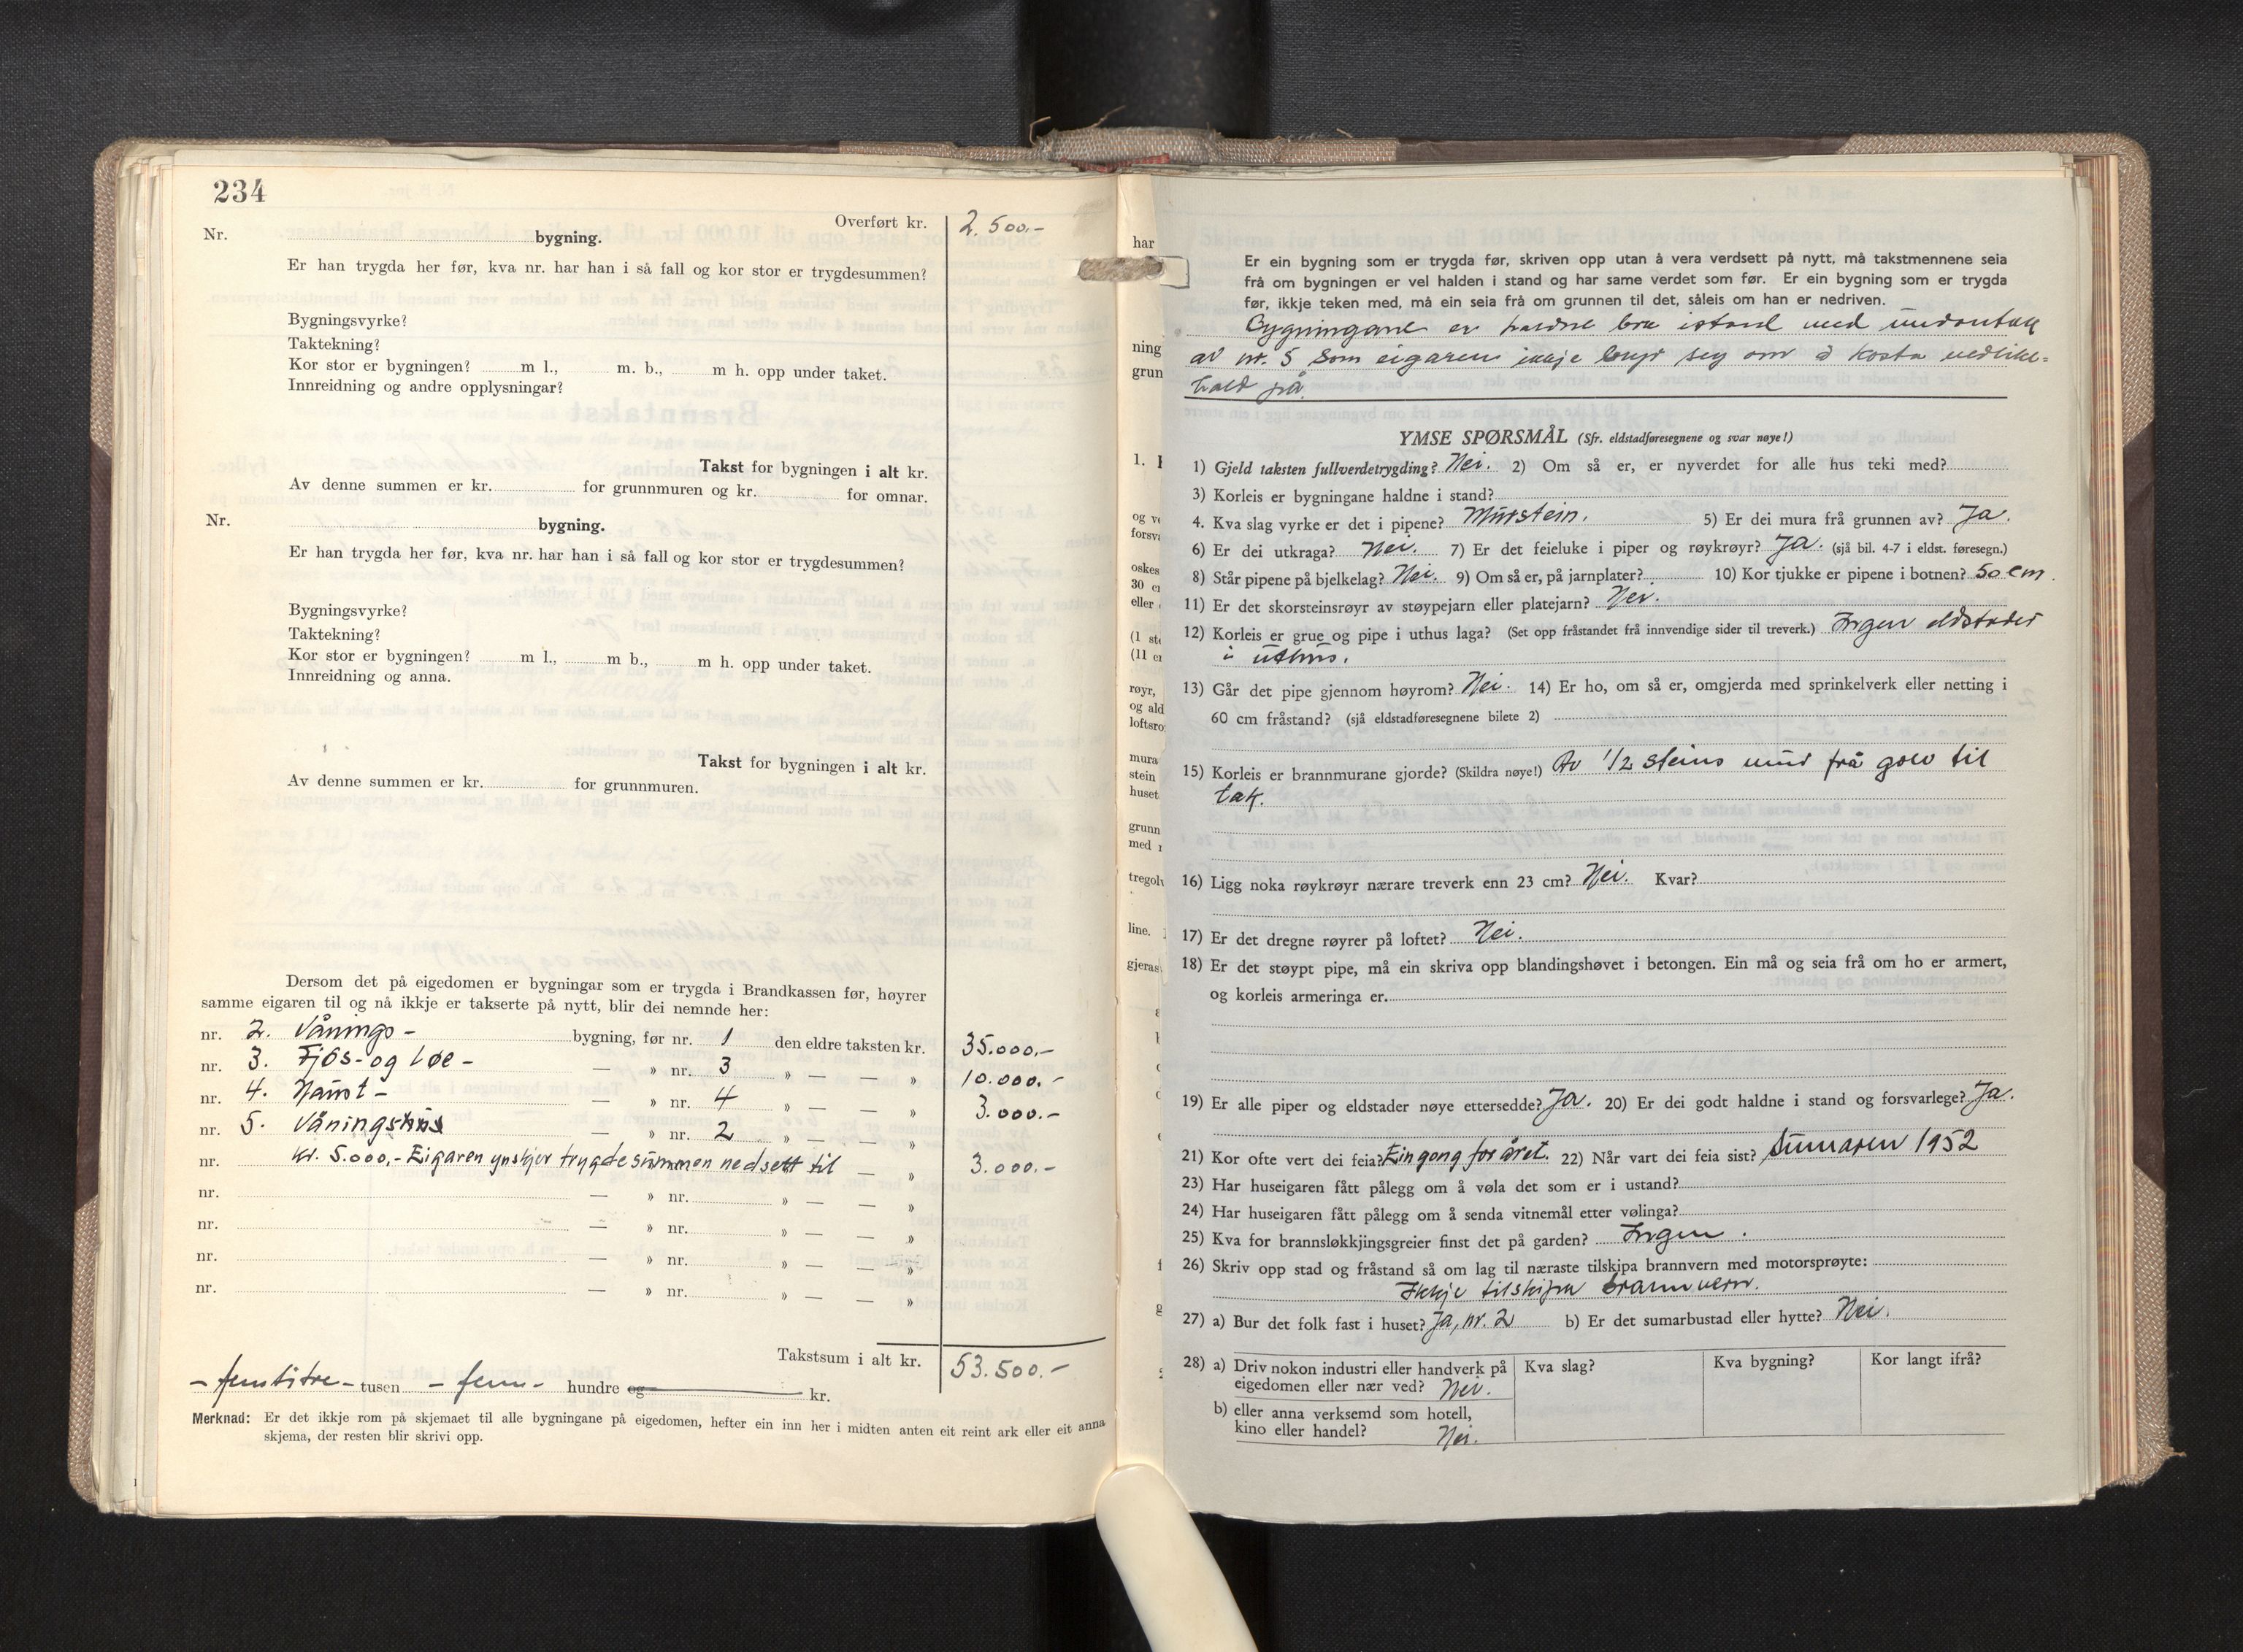 234
Overført kr. 2.500.-
Nr. bygning.
Er han trygda her før, kva nr. har han i så fall og kor stor er trygdesummen?
Bygningsvyrke?
Taktekning?
Kor stor er bygningen? m l., m. b., m h. opp under taket.
Innreidning og andre opplysningar?
Takst for bygningen i alt kr.
Av denne summen er kr. for grunnmuren og kr. for omnar.
Nr. bygning.
Er han trygda her før, kva nr. har han i så fall og kor stor er trygdesummen?
Bygningsvyrke?
Taktekning?
Kor stor er bygningen? m l., m b., m h. opp under taket.
Innreidning og anna.
Takst for bygningen i alt kr.
Av denne summen er kr. for grunnmuren.
Dersom det på eigedomen er bygningar som er trygda i Brandkassen før, høyrer
samme eigaren til og nå ikkje er takserte på nytt, blir dei nemnde her:
nr. 2. Vånings- bygning, før nr. 1 den eldre taksten kr. 35.000,-
nr. 3. Fjøs- og Løe- — » nr. 3 » — — » 10.000.-
nr. 4. Naust- — » nr. 4 » — — » 3.000.-
nr. 5. Våningshus — » nr. 2 » — — »
nr. kr. 5.000,- Eigaren ynskjer trygdesummen nedsett til — » 3.000.-
nr. — » nr. » — — »
nr. — » nr. » — — »
nr. — » nr. » — — »
nr. — » nr. » — — »
Takstsum i alt kr. 53.500.-
- femtitre - tusen - fem - hundre og kr.
Merknad: Er det ikkje rom på skjemaet til alle bygningane på eigedomen, hefter ein inn her i midten anten eit reint ark eller eit anna
skjema, der resten blir skrivi opp.
har
ning
grun
1.
og ve
forsva
oskes
30 cm
eller
(1 ste
(11 cm
røyr,
og ald
loftsro
mura
stein
huset
grunn
med
tregolv
line.
gjeras
Er ein bygning som er trygda før, skriven opp utan å vera verdsett på nytt, må takstmennene seia
frå om bygningen er vel halden i stand og har same verdet som før. Er ein bygning som er trygda
før, ikkje teken med, må ein seia frå om grunnen til det, såleis om han er nedriven.
Bygningane er haldne bra istand med undantak
av nr. 5 som eigaren ikkje bryr seg om å kosta vedlike=
hald på.
YMSE SPØRSMÅL (Sfr. eldstadføresegnene og svar nøye!)
1) Gjeld taksten fullverdetrygding? Nei. 2) Om så er, er nyverdet for alle hus teki med?
3) Korleis er bygningane haldne i stand?
4. Kva slag vyrke er det i pipene? Murstein. 5) Er dei mura frå grunnen av? Ja.
6) Er dei utkraga? Nei. 7) Er det feieluke i piper og røykrøyr? Ja. (sjå bil. 4-7 i eldst. føresegn.)
8) Står pipene på bjelkelag? Nei. 9) Om så er, på jarnplater? 10) Kor tjukke er pipene i botnen? 50 cm.
11) Er det skorsteinsrøyr av støypejarn eller platejarn? Nei.
12) Korleis er grue og pipe i uthus laga? (Set opp fråstandet frå innvendige sider til treverk.) Ingen eldstader
i uthus.
13) Går det pipe gjennom høyrom? Nei. 14) Er ho, om så er, omgjerda med sprinkelverk eller netting i
60 cm fråstand? (sjå eldstadføresegnene bilete 2)
15) Korleis er brannmurane gjorde? (Skildra nøye!) Av 1/2 steins mur frå golv til
tak.
16) Ligg noka røykrøyr nærare treverk enn 23 cm? Nei. Kvar?
17) Er det dregne røyrer på loftet? Nei.
18) Er det støypt pipe, må ein skriva opp blandingshøvet i betongen. Ein må og seia frå om ho er armert,
og korleis armeringa er.
19) Er alle piper og eldstader nøye ettersedde? Ja. 20) Er dei godt haldne i stand og forsvarlege? Ja.
21) Kor ofte vert dei feia? Ein gong for året. 22) Når vart dei feia sist? Sumaren 1952
23) Har huseigaren fått pålegg om å vøla det som er i ustand?
24) Har huseigaren fått pålegg om å senda vitnemål etter vølinga?
25) Kva for brannsløkkjingsgreier finst det på garden? Ingen.
26) Skriv opp stad og fråstand så om lag til næraste tilskipa brannvern med motorsprøyte:
Ikkje tilskipa brannvern.
27) a) Bur det folk fast i huset? Ja, nr. 2 b) Er det sumarbustad eller hytte? Nei.
28) a) Driv nokon industri eller handverk på eigedomen eller nær ved? Nei. Kva slag? Kva bygning? Kor langt ifrå?
b) eller anna verksemd som hotell,
kino eller handel? Nei.